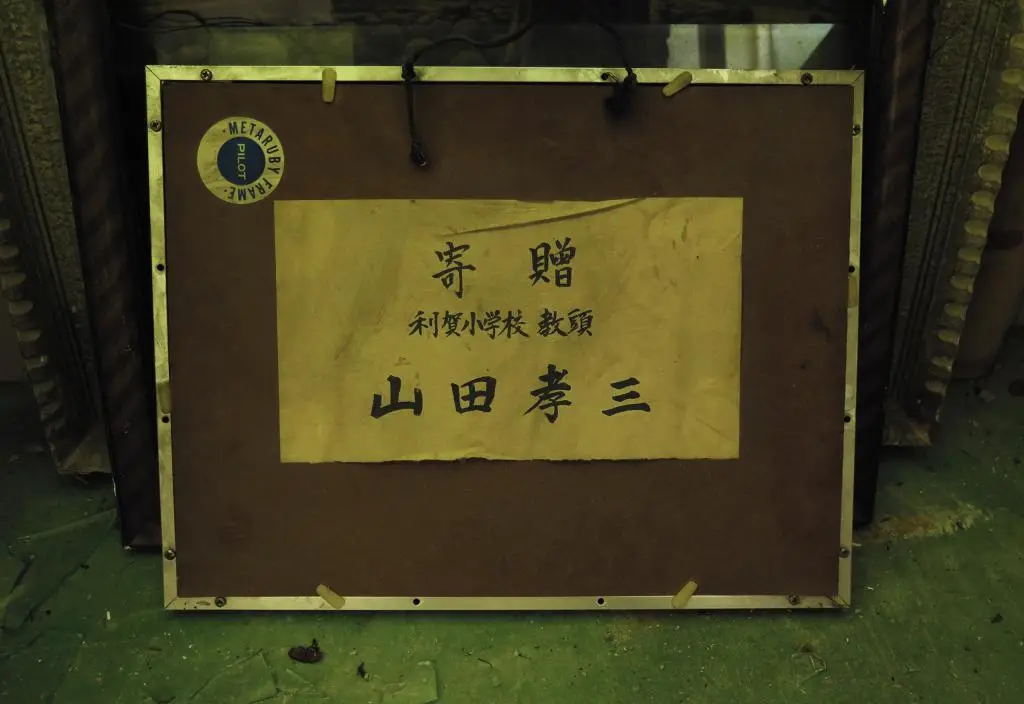 METARUBY FRAME
PILOT
寄贈
利賀小学校 教頭
山田孝三